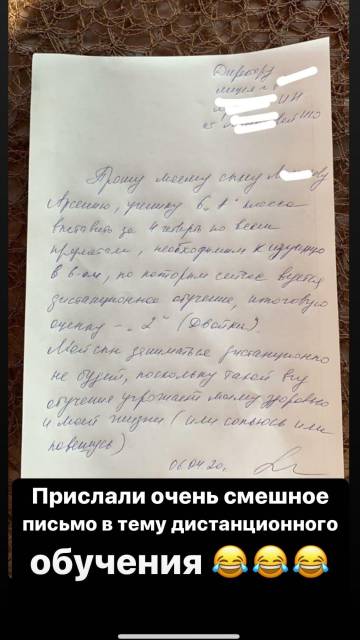 Директору
лицея
Прошу моему сыну
Арсению, ученику 8 класса
выставить за 4 четверть по всем
предметам, необходимым к
по которым сейчас ведется
дистанционное обучение, итоговую
оценку - „2" (Двойки).
Мой сын заниматься дистанционно
не будет, поскольку такой вид
обучение угрожает моему здоровью
и моей жизни (или сопьюсь или
повешусь)
06.04.20г.
Прислали очень смешное
письмо в тему дистанционного
обучения 😂😂😂